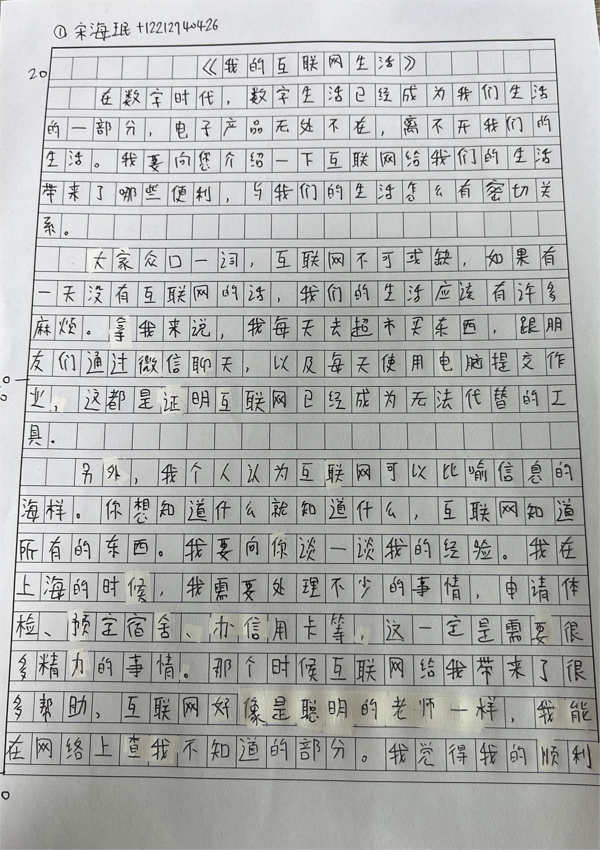 ① 宋海珉 +12212740426
20
《我的互联网生活》
在数字时代，数字生活已经成为我们生活
的一部分，电子产品无处不在，离不开我们的
生活。我要向您介绍一下互联网给我们的生活
带来了哪些便利，与我们的生活怎么有密切关
系。
大家众口一词，互联网不可或缺，如果有
一天没有互联网的话，我们的生活应该有许多
麻烦。拿我来说，我每天去超市买东西，跟朋
友们通过微信聊天，以及每天使用电脑提交作
业，这都是证明互联网已经成为无法代替的工
具。
另外，我个人认为互联网可以比喻信息的
海样。你想知道什么就知道什么，互联网知道
所有的东西。我要向你谈一谈我的经验。我在
上海的时候，我需要处理不少的事情，申请体
检、预定宿舍、办信用卡等，这一定是需要很
多精力的事情。那个时候互联网给我带来了很
多帮助、互联网好像是聪明的老师一样，我能
在网络上查我不知道的部分。我觉得我的顺利